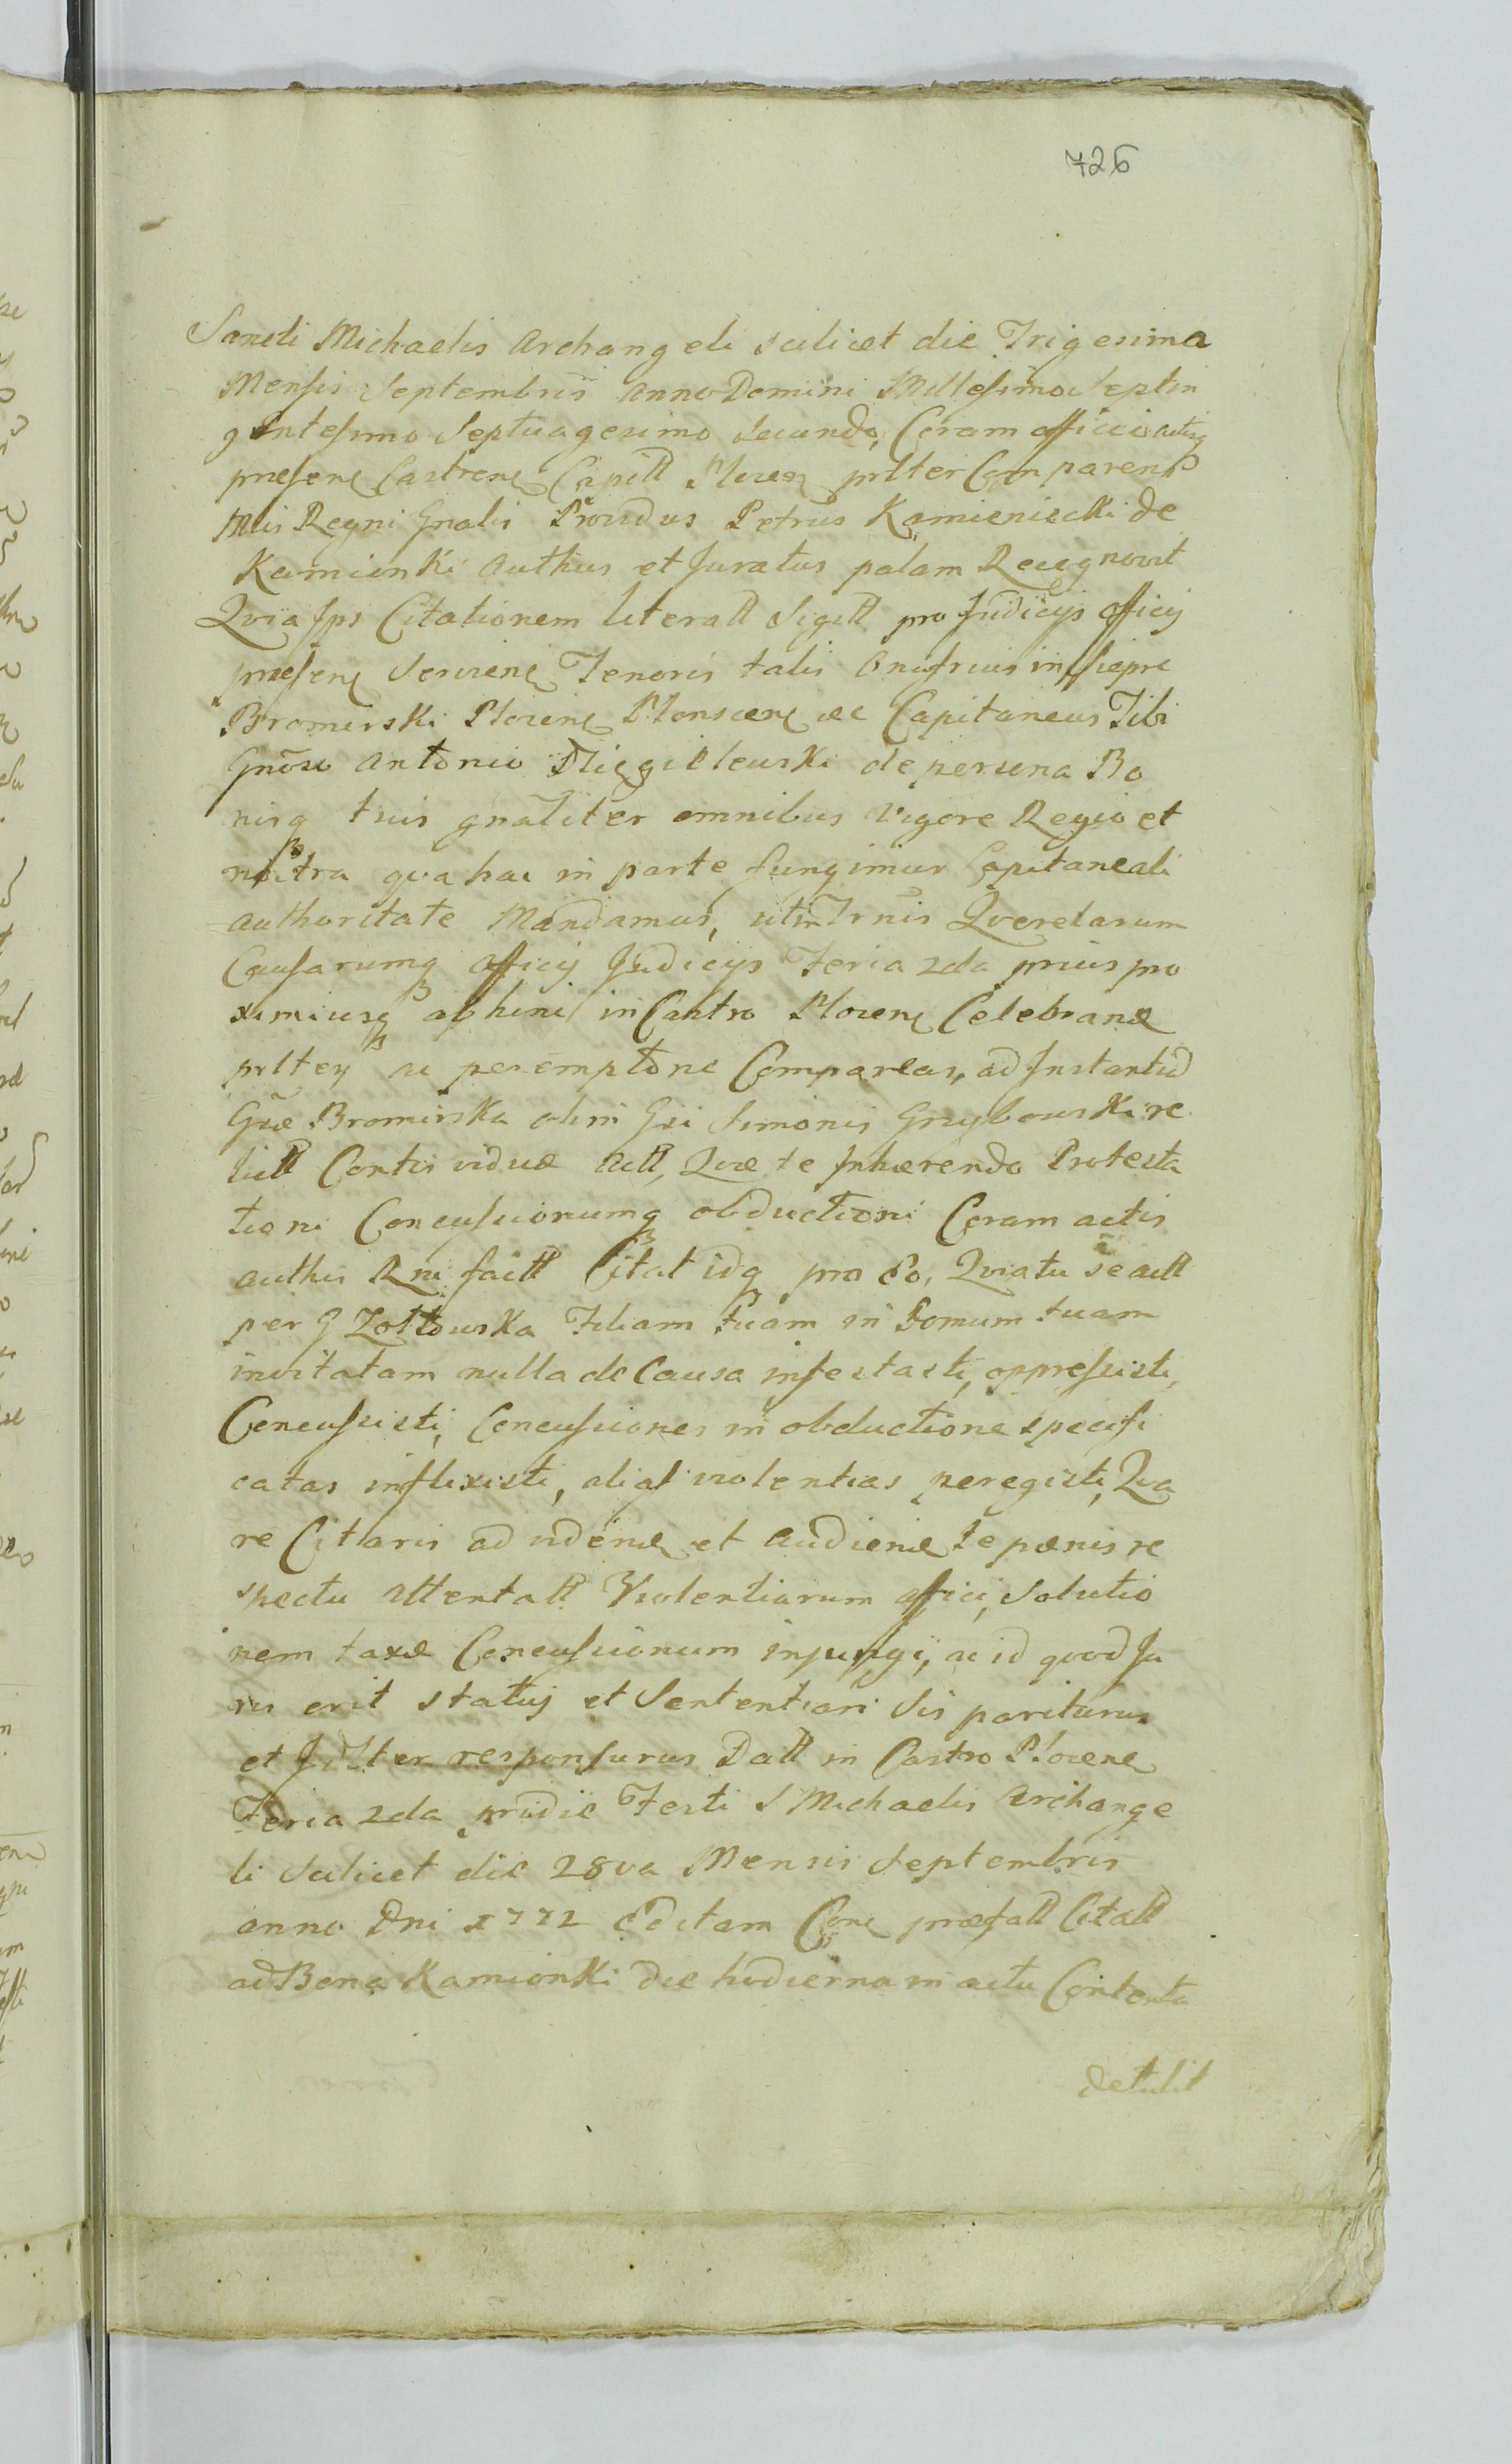 726
Sancti Michaelis Archangeli scilicet die Trigesima
Mensis Septembris Anno Domini Millesimo Septin
gentesimo Septuagesimo Secundo, Coram officio actisq
præsene Castrene Capitll Plocen prlter Comparens
Mlis Regni Gnalis Providus Petrus Kamieniecki de
Kamionki Authus et Juratus palam Recognovit
Qvia Ips Citationem literall Sigill pro Judicijs officij
præsene Serviene Tenoris talis Onufrius in Siepre
Bromirski Plocene Plonscene &c Capitaneus Tibi
Gnoso Antonio de persona Bo
nisq tuis gnaliter omnibus Vigore Regio et
nostra qva hac in parte fungimur Capitaneali
Authoritate Mandamus, ut in Trnis Qverelarum
Causarumq officij Judicijs Feria 2da prius pro
ximiusq abhinc in Castro Plocene Celebrand
prlter ac peremptorie Compareas, ad Instantiã
Gsæ Bromirska olim Gsi Simonis Grzybowski re
lictt Contis viduæ Actt, Qvæ te Inhærendo Protesta
tioni Concussionumq obductioni Coram actis
authis Rni factt Citat idq pro Eo, Qvia tu se actt
per G Zołtowska Filiam tuam in Domum tuam
invitatam nulla de Causa infestasti, oppressisti,
Concussisti, Concussiones in obductione specifi
catas inflixisti, aliasq violentias peregisti, Qva
re Citaris ad vidend et audiend Te pænis re
spectu Attentatt Violentiarum affici, Solutio
nem taxæ Concussionum injungi, ac id qvod Ju
ris erit statuj et Sententiari Sis pariturus
et Jrdlter responsurus Datt in Castro Plocene
Feria 2da pridie Festi S Michaelis Archange
li Scilicet die 28va Mensis Septembris
anno Dni 1772 Editam Cone præfatt Citatt
ad Bona Kamionki die hodierna in actu Contenta
detulit